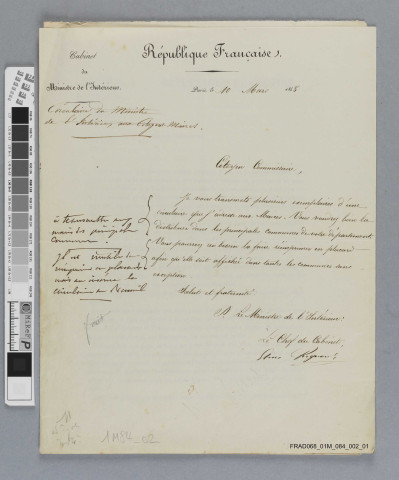 République Française.
Cabinet
du
Ministre de l'Intérieur.
Paris le 10 Mars 1848
Circulaire du Ministre
de l'Intérieur aux Citoyens Maires.
Citoyen Commissaire,
Je vous transmets plusieurs exemplaires d'une
circulaire que j'adresse aux Maires. Vous voudrez bien les
distribuer dans les principales communes de votre département
Vous pourrez au besoin la faire réimprimer en placard
afin qu'elle soit affichée dans toutes les communes sans
exception
Salut et fraternité
Le Ministre de l'Intérieur.
Le Chef du Cabinet
à transmettre aux
commune.
circulaire au Recueil
1M84
FRAD068_01M_084_002_01